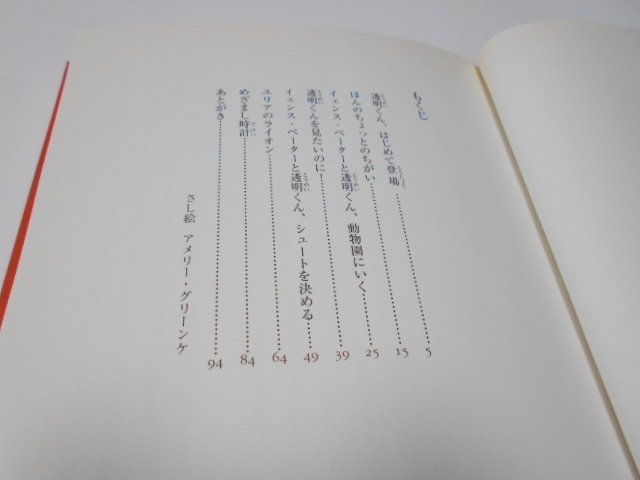 もくじ
透明くん、はじめて登場……………………5
ほんのちょっとのちがい……………………15
イェンス・ペーターと透明くん、動物園にいく………25
透明くんを見たいのに!……………………39
イェンス・ペーターと透明くん、シュートを決める……49
ユリアのライオン……………………64
めざまし時計……………………84
あとがき……………………94
さし絵 アメリー・グリーンケ